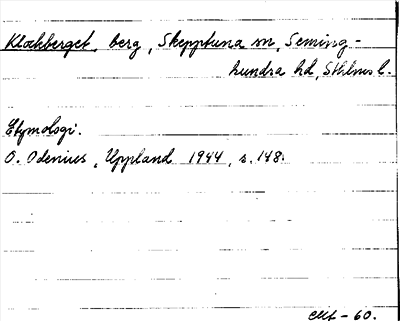 Klockberget, berg, Skepptuna sn, Seming-
hundra hd, Sthlms l.
Etymologi.
O. Odenius, Uppland 1944, s. 148.
60.